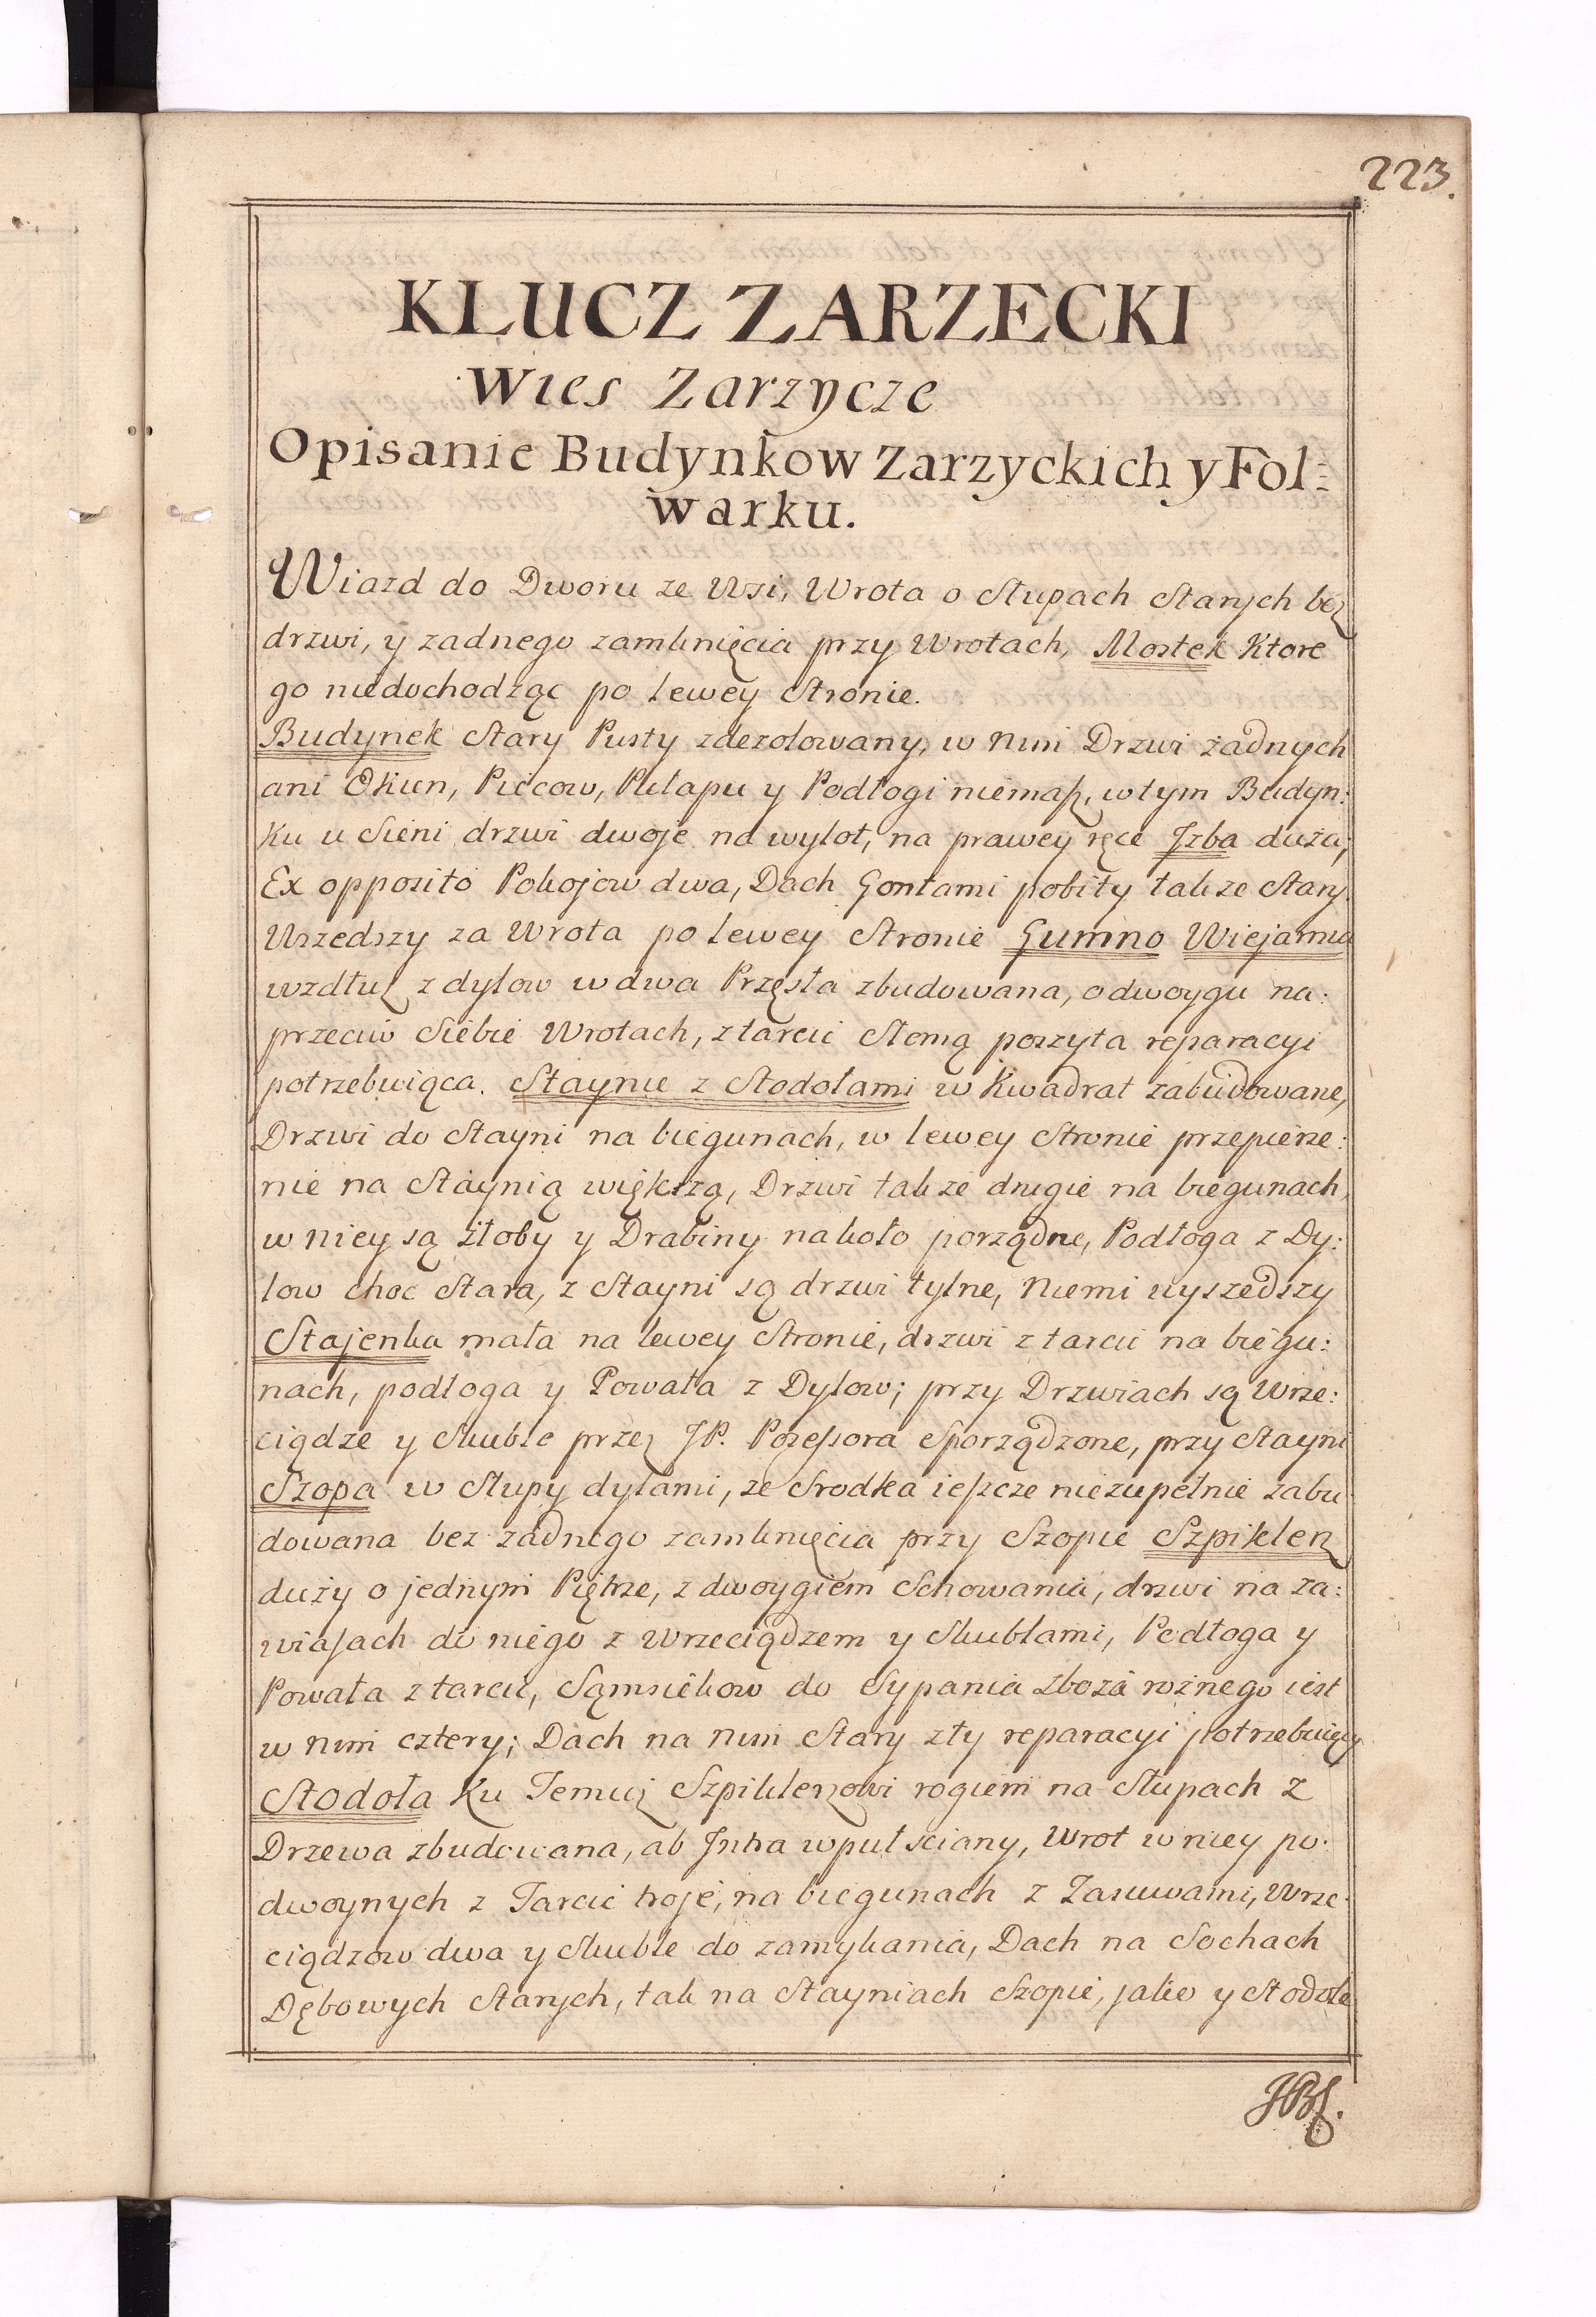 223.
KLUCZ ZARZECKI
Wies Zarzycze
Opisanie Budynkow Zarzyckich y Fol:
warku.
Wiazd do Dworu ze Wsi, Wrota o Słupach Starych bez
drzwi, y zadnego zamknięcia przy Wrotach, Mostek Ktore
go niedochodząc po lewey Stronie.
Budynek Stary Pusty zdezolowany, w nim Drzwi żadnych
ani Okien, Piecow, Pułapu y Podłogi niemasz, w tym Budyn:
Ku u Sieni drzwi dwoje na wylot, na prawey ręce Jzba duża;
Ex opposito Pokojow dwa, Dach Gontami pobity takze Stary.
Wszedszy za Wrota po lewey Stronie Gumno Wiejamia
wzdłuz z dylow w dwa Przęsła zbudowana, o dwoygu na:
przeciw Siebie Wrotach, z tarcic Słomą poszyta reparacyi
potrzebuiąca. Staynie z Stodołami w Kwadrat zabudowane,
Drzwi do Stayni na biegunach, w lewey Stronie przepierze:
nie na Staynią większą, Drzwi takze drugie na biegunach,
w niey są żłoby y Drabiny nakoło porządne, Podłoga z Dy:
low choc Stara, z Stayni są drzwi tylne, Niemi wyszedszy
Stajenka mała na lewey Stronie, drzwi z tarcic na biegu:
nach, podłoga y Powała z Dylow; przy Drzwiach są Wrze:
ciądze y Skuble przez JP. Posessora Sporządzone, przy Stayni
Szopa w Słupy dylami, ze Srodka ieszcze niezupełnie zabu
dowana bez żadnego zamknięcia przy Szopie Szpiklerz
duży o jednym Piętrze, z dwoygiem Schowania, drzwi na za:
wiasach do niego z wrzeciądzem y Skublami, Podłoga y
Powała z tarcic, Sąmsiekow do Sypania Zboża rożnego iest
w nim cztery; Dach na nim Stary zły reparacyi potrzebuięcy
Stodoła Ku Temuz Szpiklerzowi rogiem na Słupach z
Drzewa zbudowana, ab Jntra wpuł sciany, Wrot w niey po:
dwoynych z Tarcic troje, na biegunach z Zasuwami, Wrze:
ciądzow dwa y Skuble do zamykania, Dach na Sochach
Dębowych Starych, tak na Stayniach Szopie, jako y Stodole